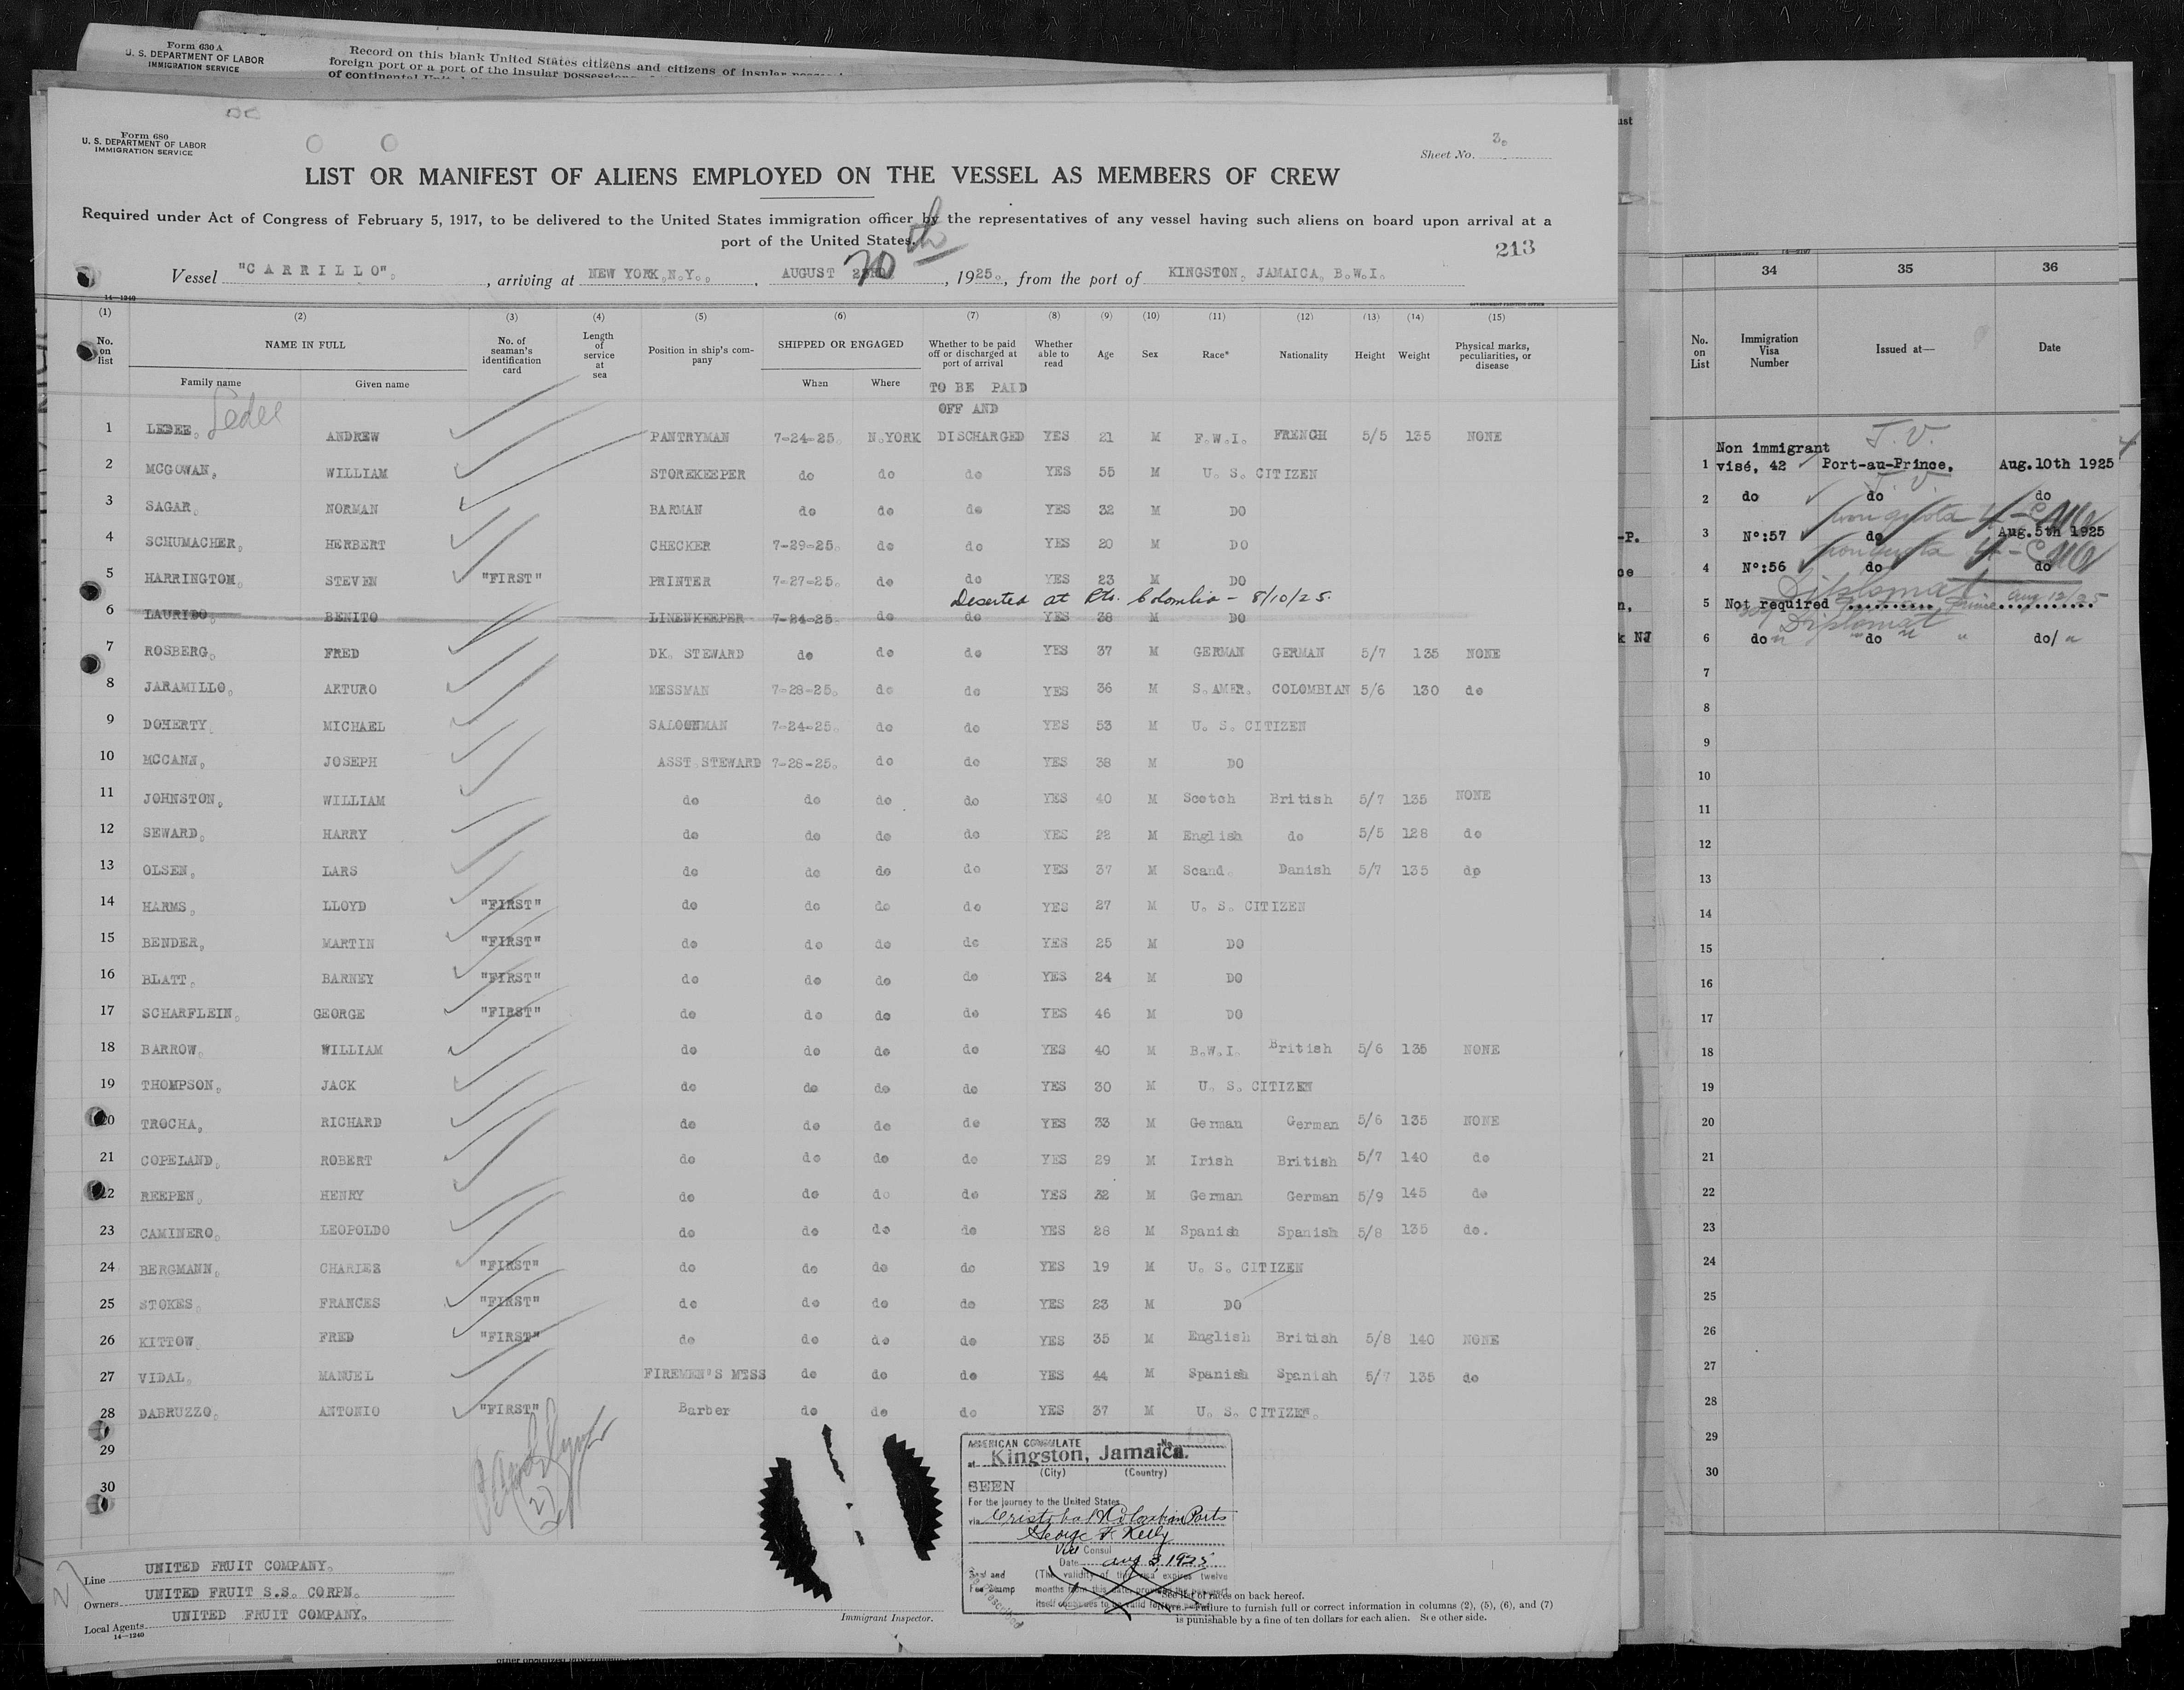 Form 630 A
U. S. DEPARTMENT OF LABOR
IMMIGRATION SERVICE
Record on this blank United States citizens and citizens of insular
foreign port or a port of the insular possessions
of continental
Form 680
U. S. DEPARTMENT OF LABOR
IMMIGRATION SERVICE
Sheet No. 3.
LIST OR MANIFEST OF ALIENS EMPLOYED ON THE VESSEL AS MEMBERS OF CREW
Required under Act of Congress of February 5, 1917, to be delivered to the United States immigration officer by the representatives of any vessel having such aliens on board upon arrival at a
port of the United States.
213
Vessel "CARRILLO", arriving at NEW YORK,N.Y., AUGUST 20th, 1925., from the port of KINGSTON, JAMAICA, B.W.I.
14-1240
(1) (2) (3) (4) (5) (6) (7) (8) (9) (10) (11) (12) (13) (14) (15)
No. on list NAME IN FULL No. of seaman's identification card Length of service at sea Position in ship's company SHIPPED OR ENGAGED Whether to be paid off or discharged at port of arrival Whether able to read Age Sex Race* Nationality Height Weight Physical marks, peculiarities, or disease
Family name Given name When Where
TO BE PAID
OFF AND
1 LEBEE, Ledee ANDREW PANTRYMAN 7-24-25. N.YORK DISCHARGED YES 21 M F.W.I. FRENCH 5/5 135 NONE
2 MCGOWAN, WILLIAM STOREKEEPER do do do YES 55 M U. S. CITIZEN
3 SAGAR, NORMAN BARMAN do do do YES 32 M DO
4 SCHUMACHER, HERBERT CHECKER 7-29-25. do do YES 20 M DO
5 HARRINGTOM, STEVEN "FIRST" PRINTER 7-27-25. do do YES 23 M DO
Deserted at Pto. Colombia - 8/10/25.
6 LAURIDO, BENITO LINENKEEPER 7-24-25 do do YES 38 M DO
7 ROSBERG, FRED DK. STEWARD do do do YES 37 M GERMAN GERMAN 5/7 135 NONE
8 JARAMILLO, ARTURO MESSMAN 7-28-25. do do YES 36 M S.AMER. COLOMBIAN 5/6 130 do
9 DOHERTY, MICHAEL SALOONMAN 7-24-25. do do YES 53 M U. S. CITIZEN
10 MCCANN, JOSEPH ASST.STEWARD 7-28-25. do do YES 38 M DO
11 JOHNSTON, WILLIAM do do do do YES 40 M Scotch British 5/7 135 NONE
12 SEWARD, HARRY do do do do YES 22 M English do 5/5 128 do
13 OLSEN, LARS do do do do YES 37 M Scand. Danish 5/7 135 do
14 HARMS, LLOYD "FIRST" do do do do YES 27 M U. S. CITIZEN
15 BENDER, MARTIN "FIRST" do do do do YES 25 M DO
16 BLATT, BARNEY "FIRST" do do do do YES 24 M DO
17 SCHARFLEIN, GEORGE "FIRST" do do do do YES 46 M DO
18 BARROW, WILLIAM do do do do YES 40 M B.W.I. British 5/6 135 NONE
19 THOMPSON, JACK do do do do YES 30 M U. S. CITIZEN
20 TROCHA, RICHARD do do do do YES 33 M German German 5/6 135 NONE
21 COPELAND, ROBERT do do do do YES 29 M Irish British 5/7 140 do
22 REEPEN, HENRY do do do do YES 32 M German German 5/9 145 do
23 CAMINERO, LEOPOLDO do do do do YES 28 M Spanish Spanish 5/8 135 do.
24 BERGMANN, CHARIES "FIRST" do do do do YES 19 M U. S. CITIZEN
25 STOKES, FRANCES "FIRST" do do do do YES 23 M DO
26 KITTOW, FRED "FIRST" do do do do YES 35 M English British 5/8 140 NONE
27 VIDAL, MANUEL FIREMEN'S MESS do do do YES 44 M Spanish Spanish 5/7 135 do
28 DABRUZZO, ANTONIO "FIRST" Barber do do do YES 37 M U. S. CITIZEN.
29
30
27
AMERICAN CONSULATE No.
at Kingston, Jamaica.
(City) (Country)
SEEN
For the journey to the United States
via Cristobal & Colombian Ports
George F. Kelly
Vice Consul
Date Aug 3 1925
Seal and
Fee Stamp
(The validity of this visa expires twelve
months from this date, provided the passport
itself continues to be valid for that period)
27
Line UNITED FRUIT COMPANY.
Owners UNITED FRUIT S.S. CORPN.
Local Agents UNITED FRUIT COMPANY.
14-1240
Immigrant Inspector.
See list of races on back hereof.
NOTE.—Failure to furnish full or correct information in columns (2), (5), (6), and (7)
is punishable by a fine of ten dollars for each alien. See other side.
34 35 36
No. on List Immigration Visa Number Issued at— Date
T. V.
Non immigrant
1 visé, 42 Port-au-Prince, Aug.10th 1925
T. V.
2 do do do
non quota 4-
3 Nº:57 do Aug.5th 1925
non quota 4-
4 Nº:56 do do
Diplomat
5 Not required Prince Aug 12/25
Diplomat
6 do do do/
7
8
9
10
11
12
13
14
15
16
17
18
19
20
21
22
23
24
25
26
27
28
29
30